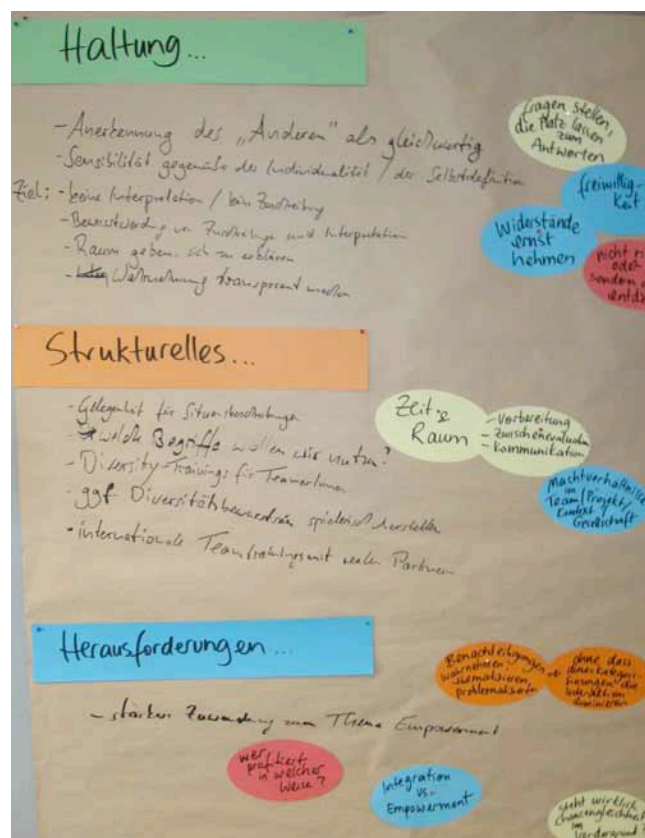 Haltung...
- Anerkennung des „Anderen" als gleichwertig
- Sensibilität gegenüber der Individualität / der Selbstdefinition
Ziel: - keine Interpretation / kein Zuschreibung
- Bewusstwerdung von Zuschreibungen und Interpretation
- Raum geben, sich zu erklären
- Wahrnehmung transparent machen
fragen stellen,
die Platz lassen
zum
Antworten
freiwillig-
keit
Widerstände
ernst
nehmen
nicht
oder
sondern
Strukturelles...
- Gelegenheit für Situationsbeschreibungen
- welche Begriffe wollen wir nutzen?
- Diversity-Trainings für TeamerInnen
- ggf Diversitätsbewusstsein spielerisch herstellen
- internationale Teamtrainings mit realen Partnern
Zeit &
Raum
- Vorbereitung
- Zwischenevaluation
- Kommunikation
Machtverhältnisse
im
Team/Projekt/
Kontext
Gesellschaft
Herausforderungen...
- stärkere Zuwendung zum Thema Empowerment
Benachteiligungen
wahrnehmen,
thematisieren,
problematisieren
ohne dass
diese Kategori-
sierungen die
Interaktion
dominieren
wer
profitiert
in welcher
Weise?
Integration
vs.
Empowerment
steht wirklich
Chancengleichheit
im
Vordergrund?